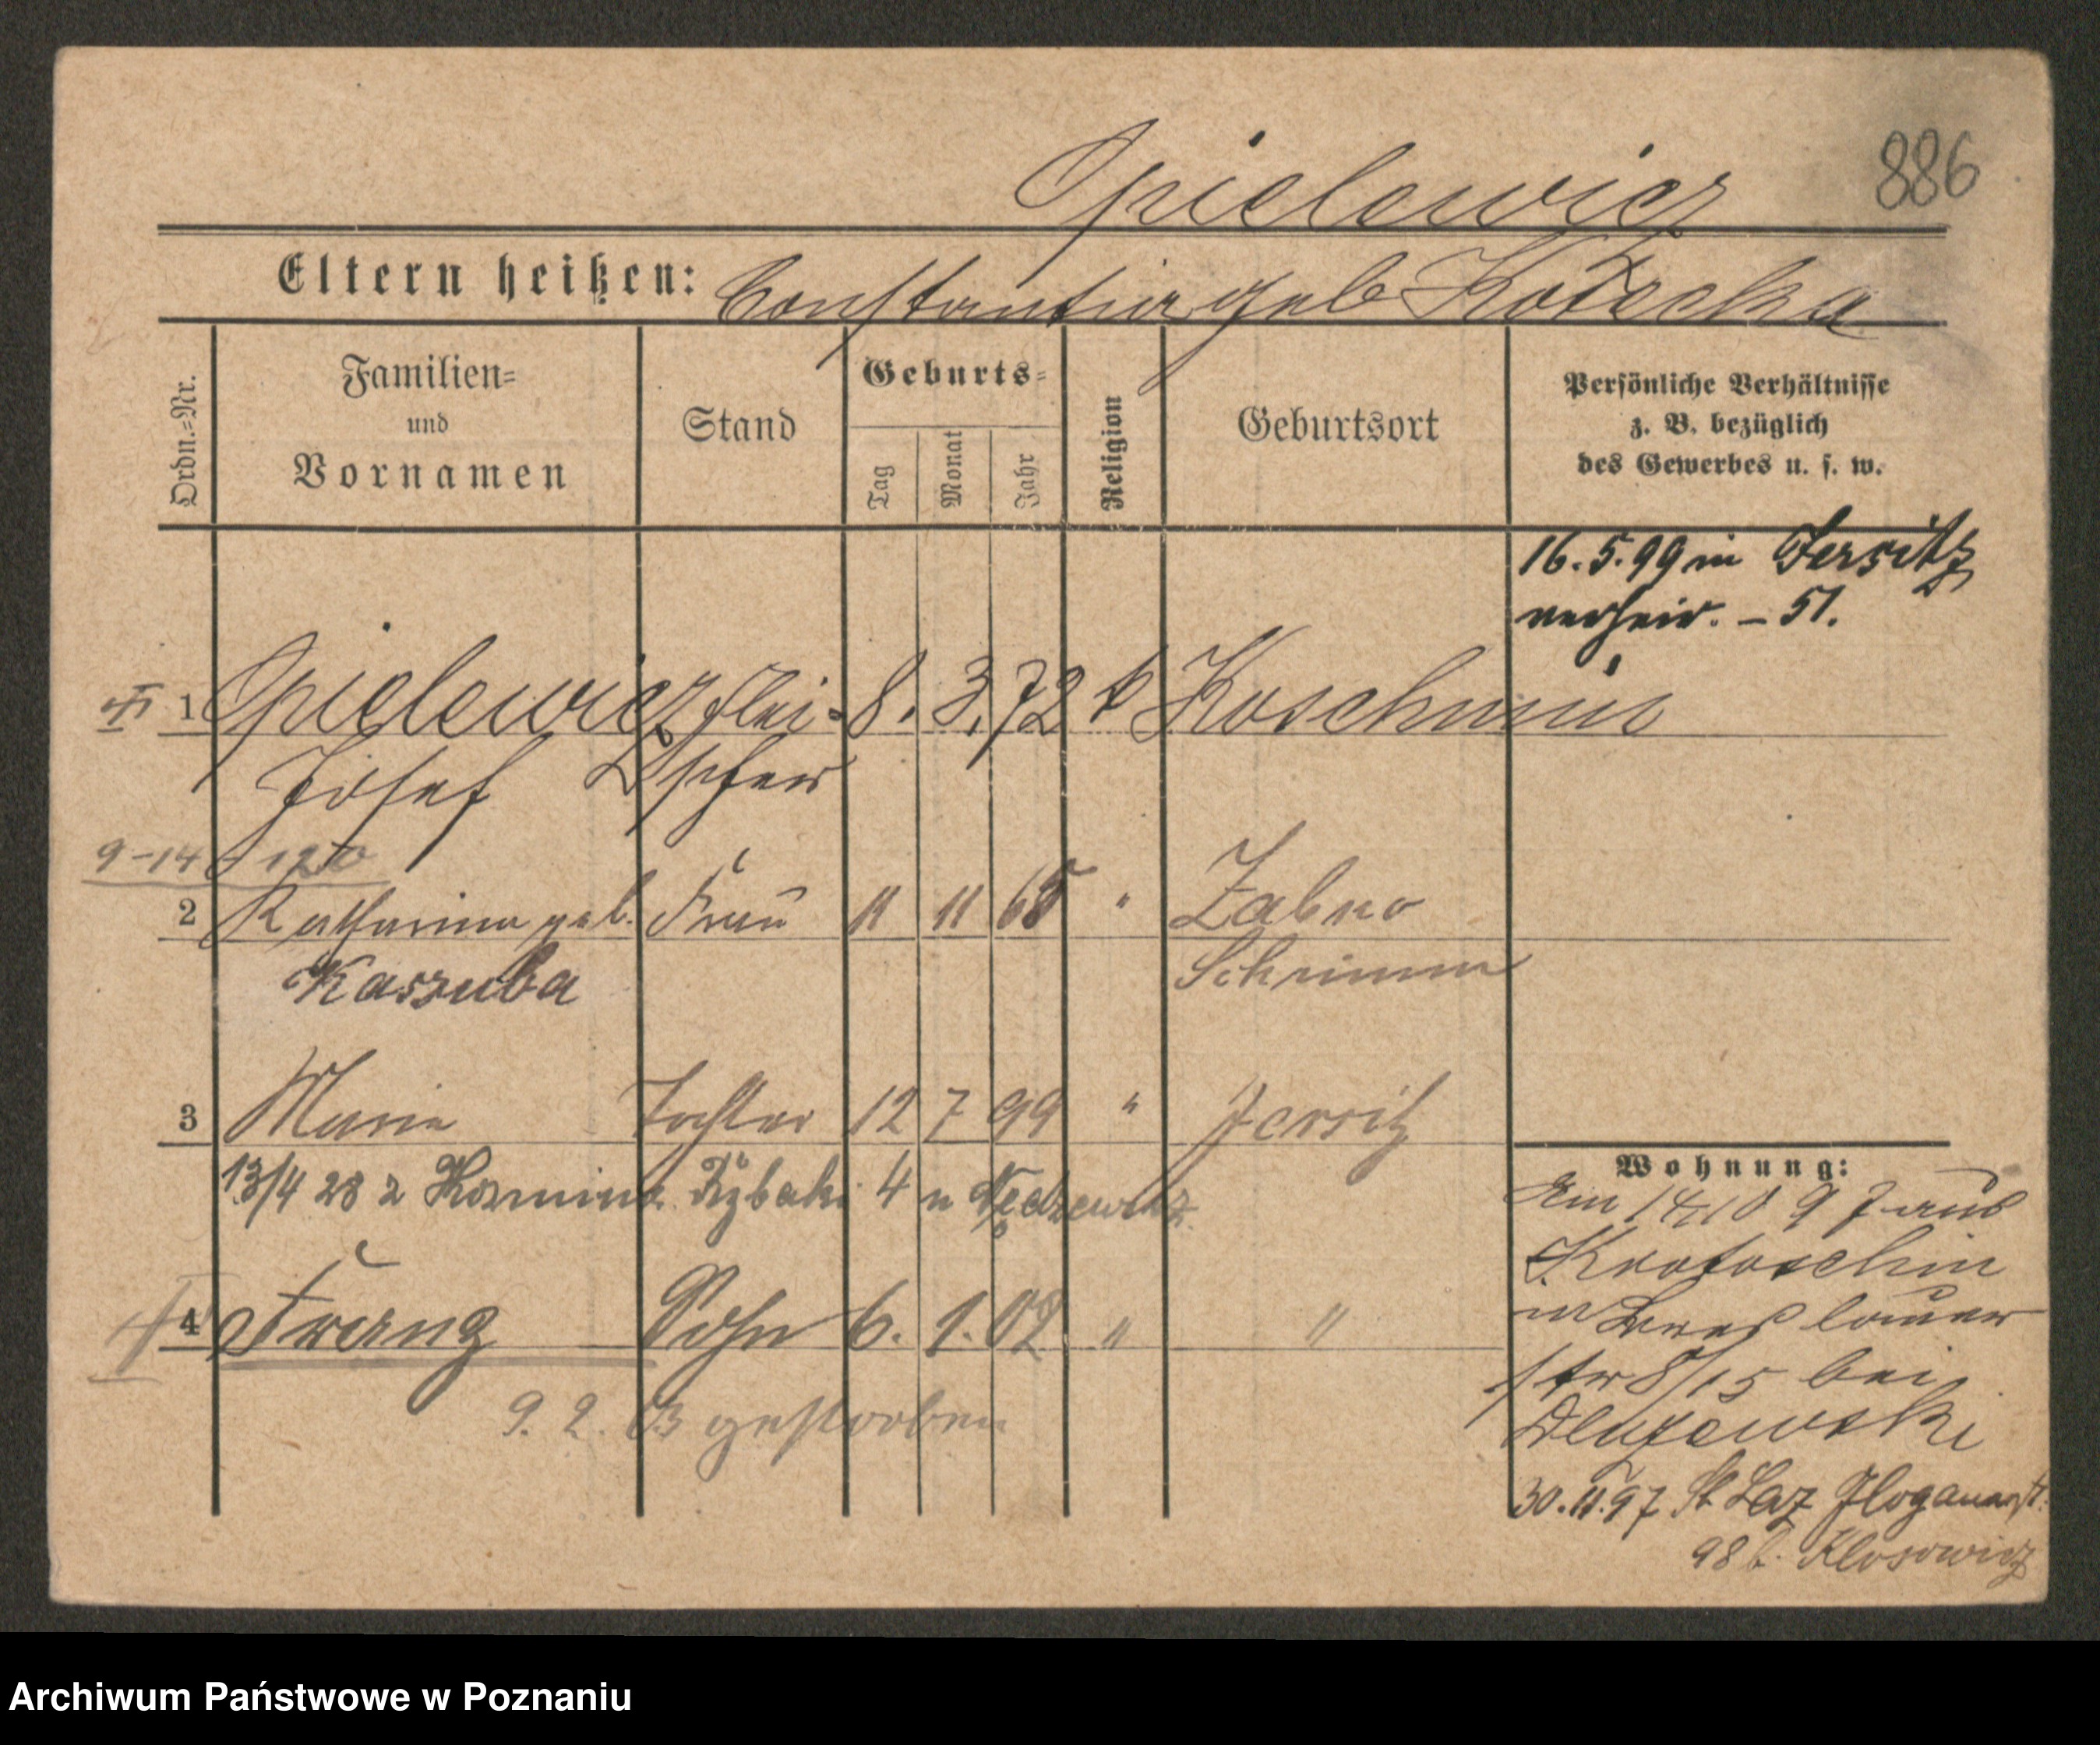 886
Opielewicz
Eltern heißen: Constantia geb Kotecka
Ordn.-Nr.
Familien-
und
Vornamen
Stand
Geburts-
Tag
Monat
Jahr
Religion
Geburtsort
Persönliche Verhältnisse
z. B. bezüglich
des Gewerbes u. s. w.
16.5.99 in Jersitz
verheir. – 51.
1 Opielewicz Flei- 8. 3. 72 k Koschmin
Josef
9-14 120
2 Katharina geb. Frau 11 11 68 " Zabno
Kaszuba Schrimm
3 Maria Tochter 12 7 99 " Jersitz
13/4 28 z 4 u
4 Franz Sohn 6. 1. 02 " "
9. 2. 03 gestorben
Wohnung:
Am 14/10 97 aus
Krotoschin
in
str 8/15 bei
30.11.97 St Laz Glogauerst.
98 b. Klosowicz
Archiwum Państwowe w Poznaniu